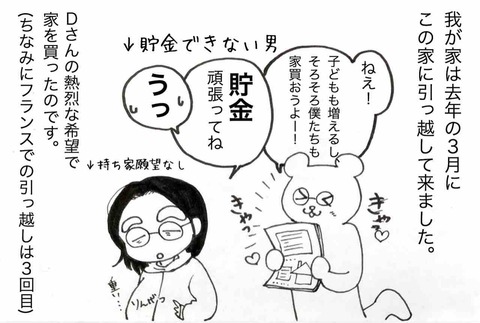 我が家は去年の3月に
この家に引っ越して来ました。
ねえ!
子どもも増えるし
そろそろ僕たちも
家買おうよー!
きゃっ
きゃっ
↓貯金できない男
貯金
頑張ってね
うっ
↓持ち家願望なし
重い…
りんげつ
Dさんの熱烈な希望で
家を買ったのです。
(ちなみにフランスでの引っ越しは3回目)